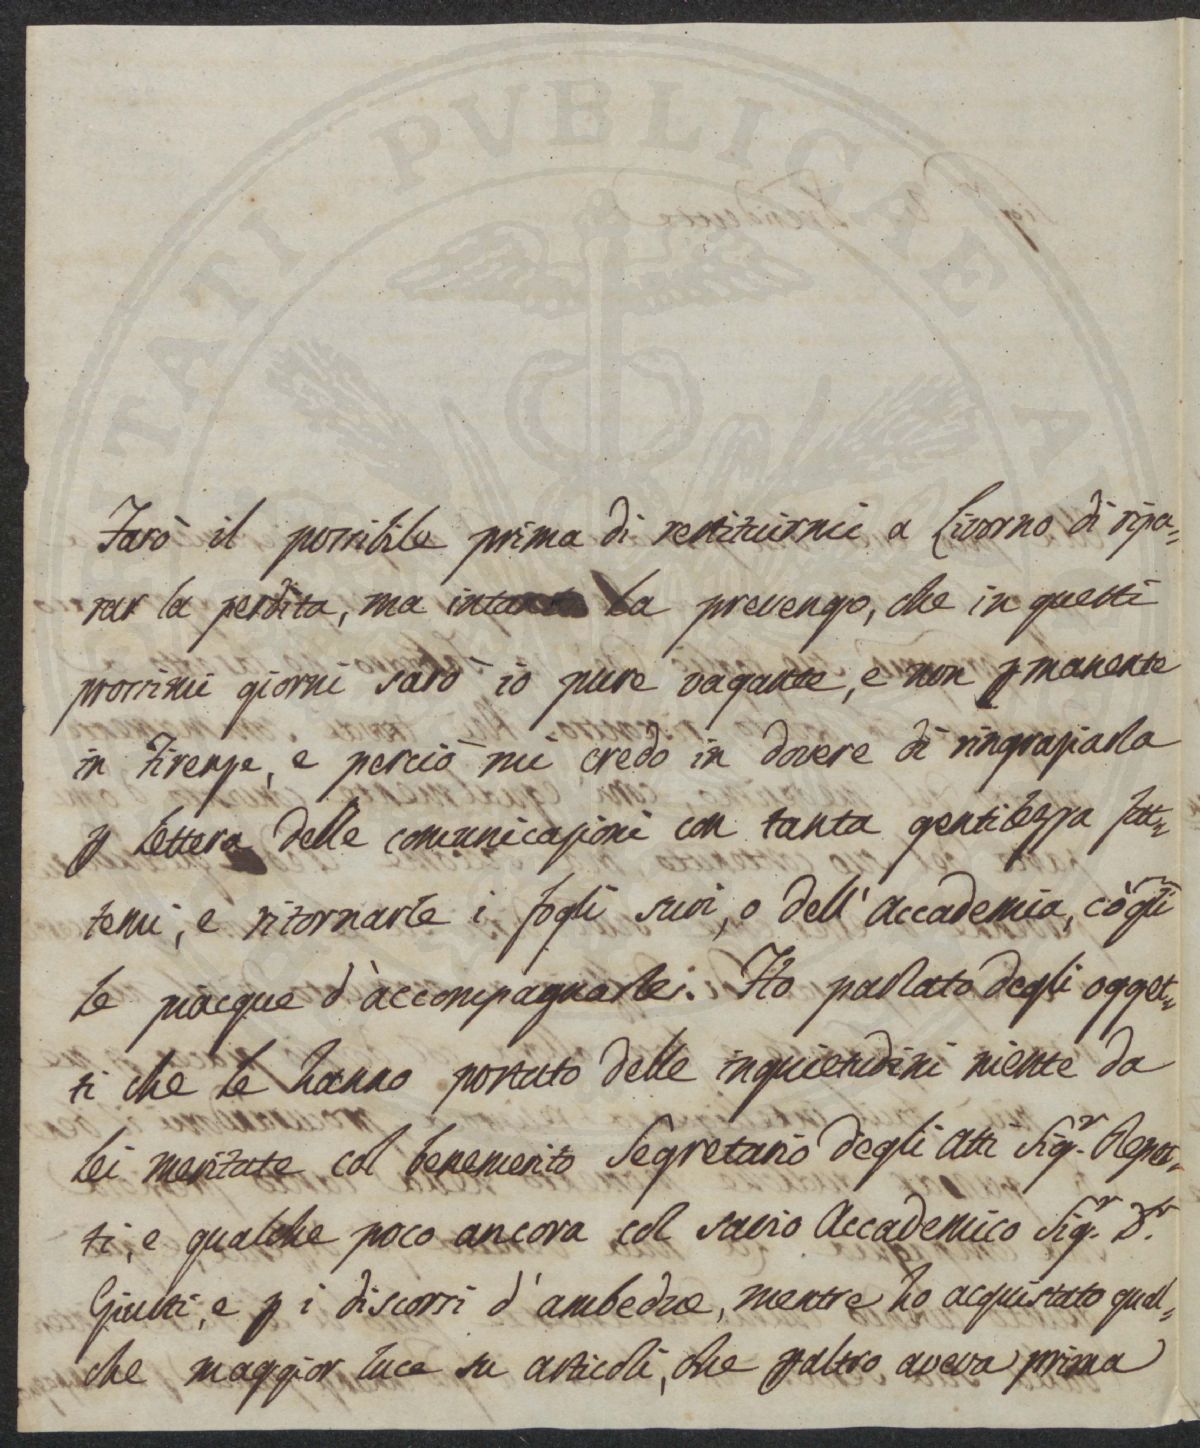 PROSPERITATI PUBLICAE AUGENDAE
Farò il possibile prima di restituirmi a Livorno di ripa=
rar la perdita, ma intanto la prevengo, che in questi
prossimi giorni sarò io pure vagante, e non pmanente
in Firenze, e perciò mi credo in dovere di ringraziarla
p lettera delle comunicazioni con tanta gentilezza fat=
temi, e ritornarle i fogli suoi, o dell'Accademia, cò q̃li
le piacque d'accompagnarlei. Ho parlato degli ogget=
ti che le hanno portato delle inquietudini niente da
lei meritate col benemerito Segretario degli Atti Sig.r Repet=
ti, e qualche poco ancora col savio Accademico Sig.r D.r
Giusti, e p i discorsi d'ambedue, mentre ho acquistato qual=
che maggior luce su articoli, che paltro aveva prima